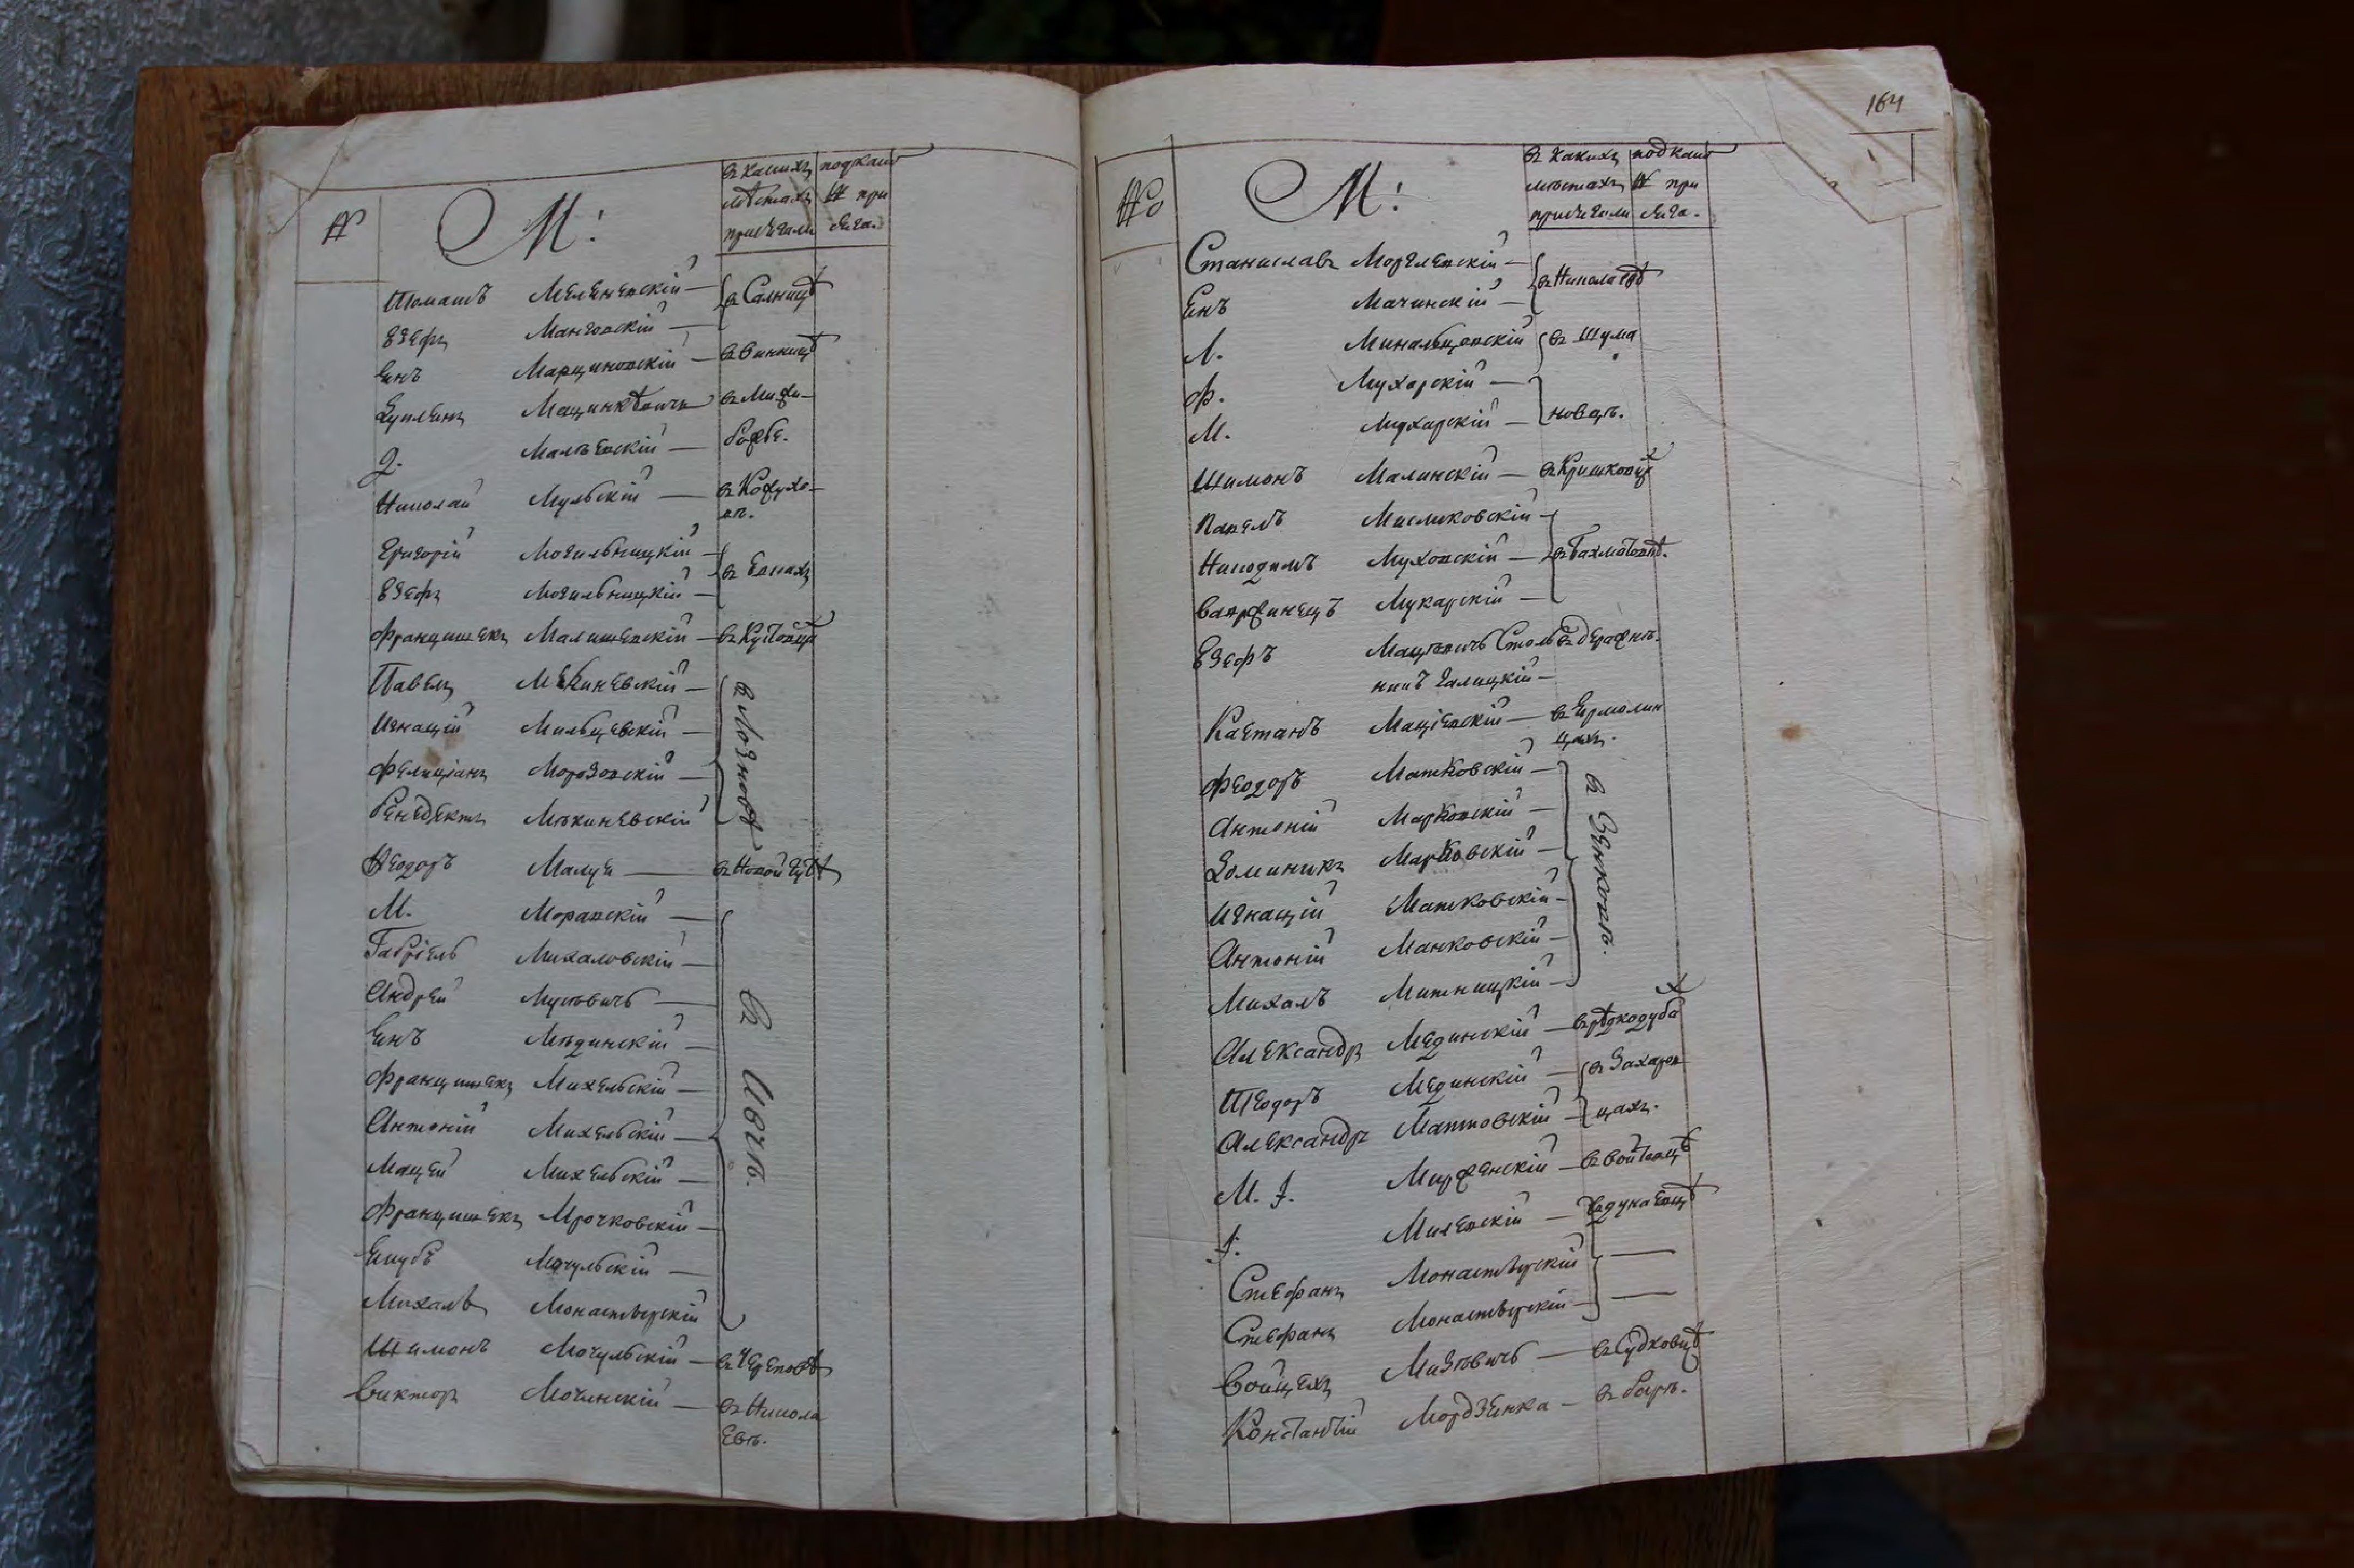 №
М:
въ какихъ
мѣстахъ
присягали
под каким
№ при
сяга.
Томашъ Меленевскій — въ Салницѣ
Езефъ Манговскій —
Енъ Марциновскій — въ Винницѣ
Куплеянъ Мацинкѣвичъ въ Межи-
Д. Малѣевскій — рожбе.
Николай Мульскій — въ Кожухо-
вѣ.
Григорій Могильницкій —
въ Елнахъ
Езефъ Могильницкій —
Францишекъ Малишевскій — въ Кустовцѣ
Павелъ Мекиневскій —
въ Лозновѣ
Игнацій Мильцевскій —
Фелиціанъ Морозовскій —
Бенедектъ Мѣкиневскій
Ѳеодоръ Малуя — въ Новой Гутѣ
М. Моравскій —
въ Ивчѣ.
Габріель Михаловскій —
Андрей Мусѣвичь —
Енъ Мѣдинскій —
Францишекъ Михельскій —
Антоній Михельскій —
Мацей Михельскій —
Францишекъ Мрочковскій —
Якубъ Мочульскій —
Михалъ Монастѣрскій
Шимонъ Мочульскій — въ Череповѣ
Викторъ Мочинскій — въ Никола
евѣ.
164
№
М:
въ какихъ
мѣстахъ
присягали
под каким
№ при
сяга.
Станиславъ Моргѣлевскій —
въ Николаевѣ
Енъ Мачинскій —
Л. Минальцовскій въ Шума
Ф. Мухарскій —
новцѣ.
М. Мухарскій —
Шимонъ Малинскій — въ Кришковцѣ
Павелъ Мисликовскій —
Никодимъ Муховскій — въ Бахмотовѣ.
Вавржинецъ Мукарскій —
Езефъ Мацѣвичь Столь въ деражнѣ.
никъ Галицкій —
Каетанъ Маціевскій — въ Ермолин
цахъ.
Феодоръ Матковскій —
въ Зенковѣ.
Антоній Марковскій —
Доминикъ Марковскій —
Игнацій Матковскій —
Антоній Манковскій —
Михалъ Митницкій —
Александръ Мединскій — въ рѣдкодуба
Теодоръ Мединскій — въ Захарев
Александръ Матковскій — цахъ.
М. J. Мирженскій — въ Войтовцѣ
J. Милевскій — въ дунаевцѣ
Стефанъ Монастѣрскій —
Стефанъ Монастѣрскій —
Войцехъ Мизѣвичь — въ Судковцѣ
Константій Мордзенка — въ барѣ.